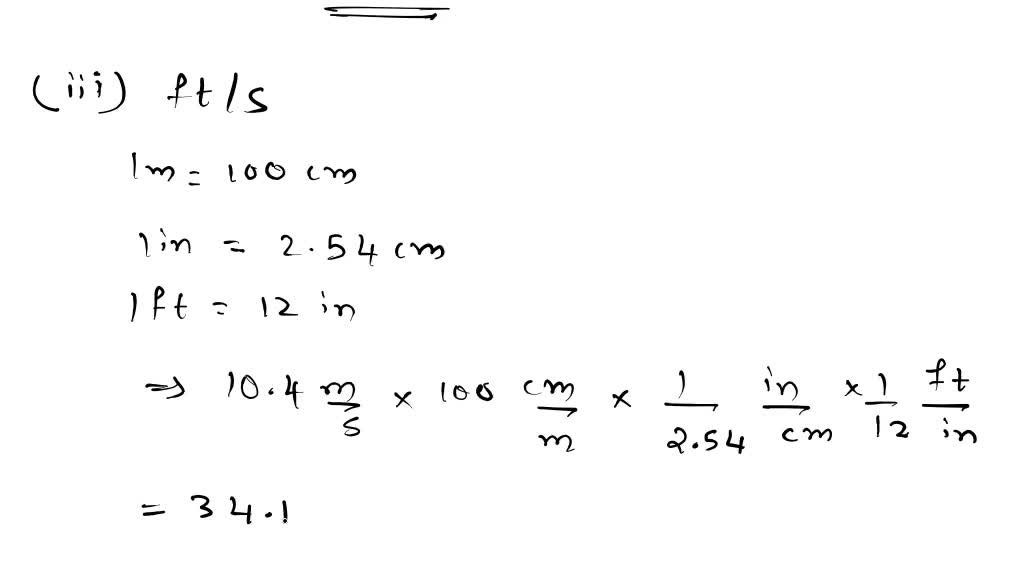 (iii) ft/s
1m = 100 cm
1in = 2.54 cm
1ft = 12 in
⇒ 10.4 m/s × 100 cm/m × 1/2.54 in/cm × 1/12 ft/in
= 34.1